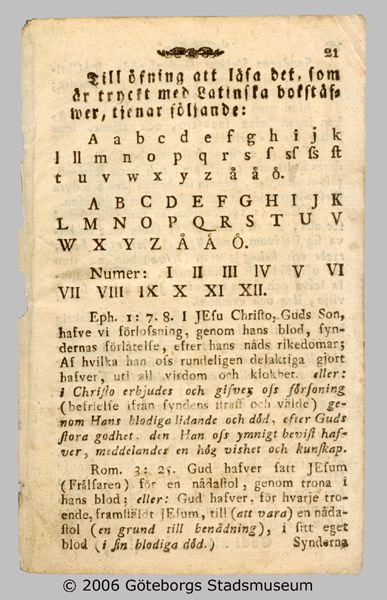 21
Till öfning att läsa det, som
är tryckt med Latinska bokstäf-
wer, tjenar följande:
A a b c d e f g h i j k
l ll m n o p q r s ſ sſ ſs ſt
t u v w x y z å ä ö.
A B C D E F G H I J K
L M N O P Q R S T U V
W X Y Z Å Ä Ö.
Numer: I II III IV V VI
VII VIII IX X XI XII.
Eph. 1: 7. 8. I JEſu Chriſto, Guds Son,
hafve vi förloſsning, genom hans blod, ſyn-
dernas förlåtelſe, efter hans nåds rikedomar;
Af hvilka han oſs rundeligen delaktiga gjort
hafver, uti all visdom och klokhet. eller:
i Chriſto erbjudes och gifves oſs förſoning
(befrielſe ifrån ſyndens ſtraff och välde) ge-
nom Hans blodiga lidande och död, efter Guds
ſtora godhet, den Han oſs ymnigt beviſt haf-
ver, meddelandes en hög vishet och kunſkap.
Rom. 3: 25. Gud hafver ſatt JEſum
(Frälſaren) för en nådaſtol, genom trona i
hans blod; eller: Gud hafver, för hvarje tro-
ende, framſtäldt JEſum, till (att vara) en nåda-
ſtol (en grund till benådning), i ſitt eget
blod (i ſin blodiga död.) Synderna
© 2006 Göteborgs Stadsmuseum